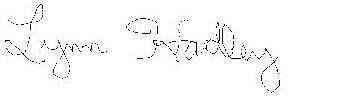 Lynn Hadley